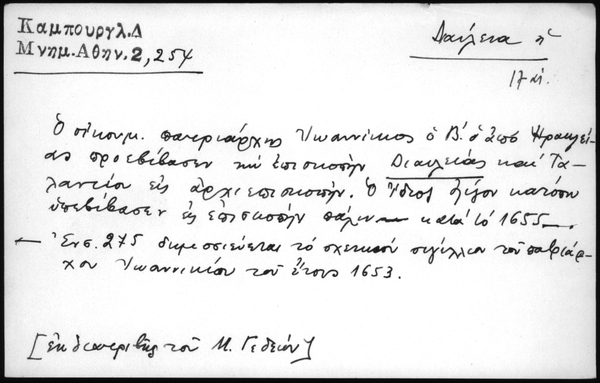 Καμπουργλ.Δ
Μνημ.Αθην.2,254
Δαύλεια ἡ
17 αἰ.
Ὁ οἰκουμ. πατριάρχης Ἰωαννίκιος ὁ Β.' ὁ ἀπό Ἡρακλεί-
ας προεβίβασεν τήν ἐπισκοπήν Διαυλείας καί Τα-
λαντίου εἰς ἀρχιεπισκοπήν. Ὁ ἴδιος λίγον κατόπιν
ὑπεβίβασεν εἰς ἐπισκοπήν πάλιν — κατά τό 1655 —.
— Ἐν σ. 275 δημοσιεύεται τό σχετικόν σιγίλλιον τοῦ πατριάρ-
χου Ἰωαννικίου τοῦ ἔτους 1653.
[ἐκ διατριβῆς τοῦ Μ. Γεδεών]